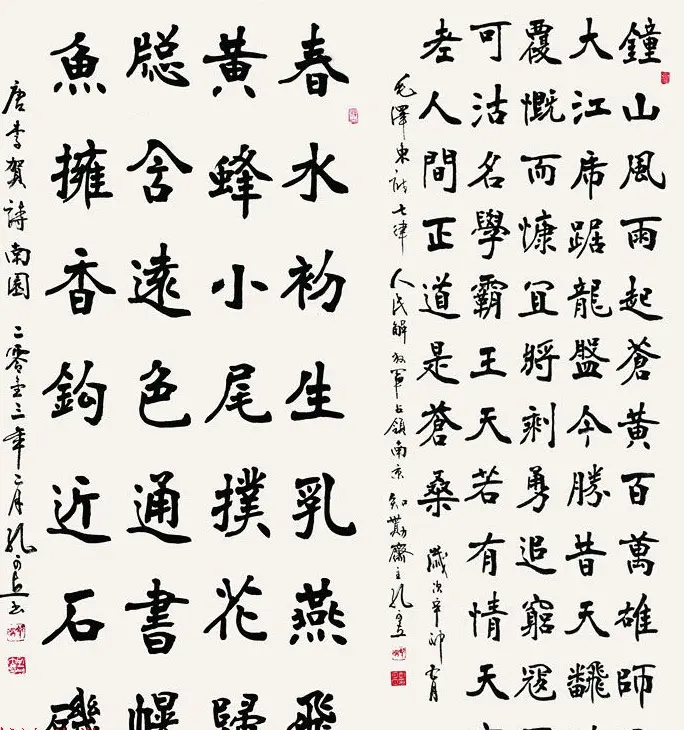 鐘山風雨起蒼黃百萬雄師
大江虎踞龍盤今勝昔天飜
覆慨而慷宜將剩勇追窮寇
可沽名學霸王天若有情天
老人間正道是蒼桑 歲次辛卯
毛澤東詩七律 人民解放軍占領南京
春水初生乳燕飛
黃蜂小尾撲花歸
窗含遠色通書幌
魚擁香鉤近石磯
唐李賀詩南園 二零壹三年二月孔